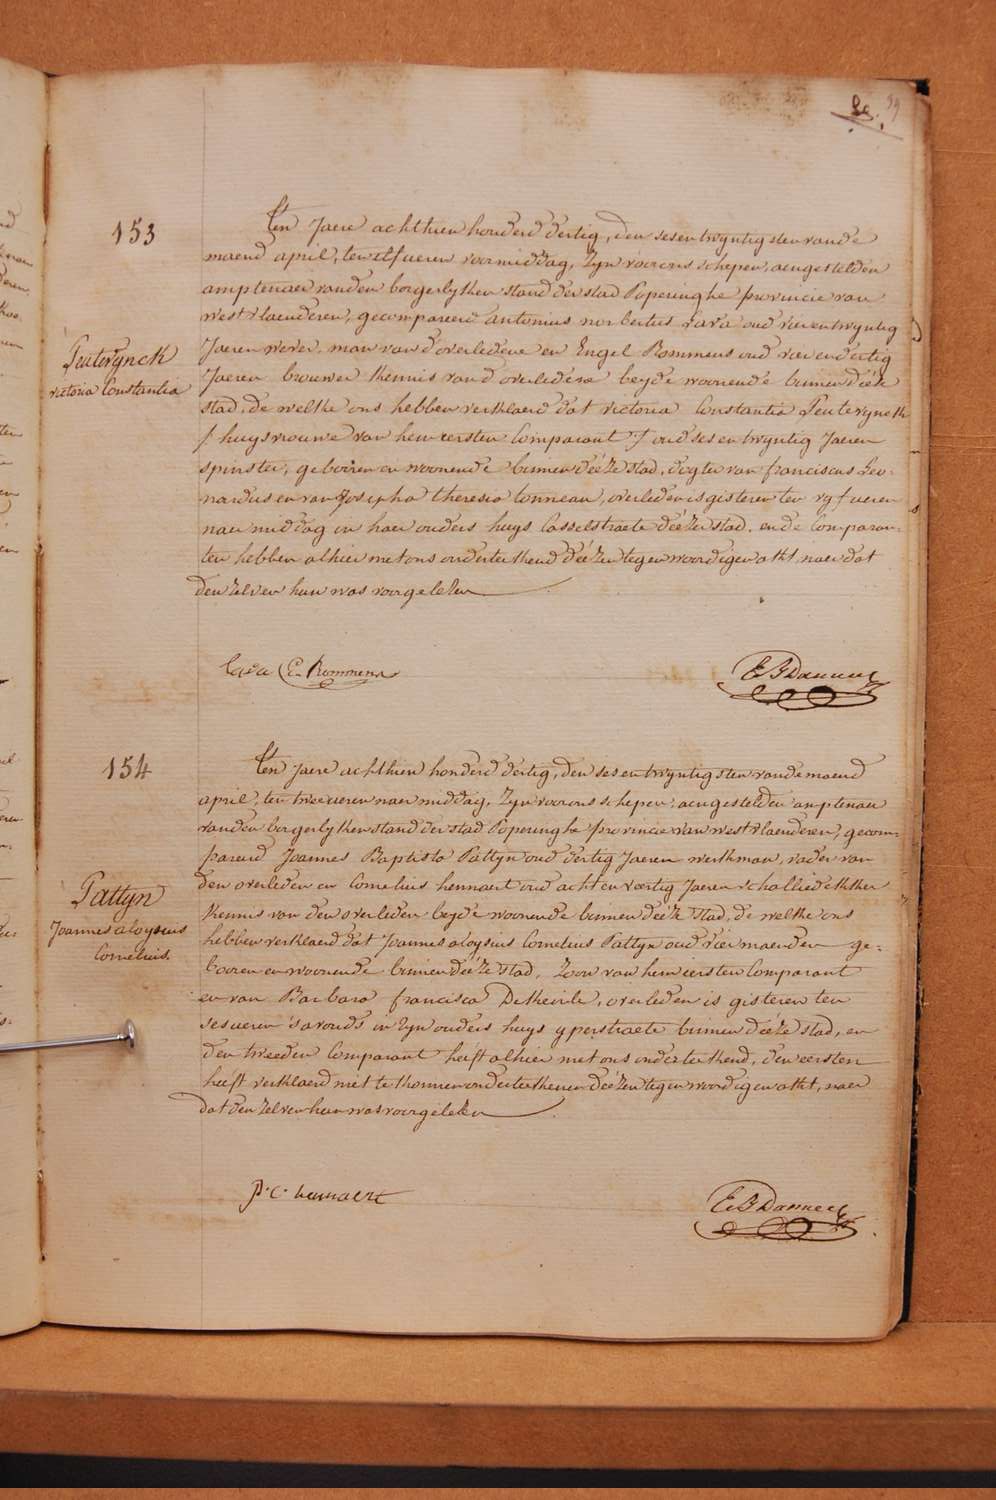 89.
153
Peuterynck
victoria Constantia
Ten Jaere achthien honderd dertig, den sesentwyntigsten vande
maend april, ten elf ueren voormiddag, Zyn voor ons schepen, aengestelden
amptenaer vanden borgerlyken stand der stad Poperinghe provincie van
westvlaenderen, gecompareerd antonius norbertus Cava oud vierentwyntig
Jaeren wever, man van d'overledene en Engel Rommens oud vierendertig
Jaeren brouwer kennis van d'overledene beyde woonende binnen déeze
stad, de welke ons hebben verklaerd dat victoria Constantia Peuterynck
huysvrouwe van hem eersten Comparant oud ses en twyntig Jaeren
spinster, gebooren en woonende binnen déeze stad, dogter van franciscus Leo-
nardus en van Josepha theresia tonneau, overleden is gisteren ten vyf ueren
naer middag in haer ouders huys Casselstraete déezer stad, en de Comparan-
ten hebben alhier met ons onderteekend déezen tegenwoordigen akt, naer dat
den zelven hun was voorgelezen
Cava E. Rommens
154
Pattyn
Joannes aloysius
Cornelius.
Ten Jaere achthien honderd dertig, den sesentwyntigsten vande maend
april, ten twee ueren naer middag, Zyn voor ons schepen, aengestelden amptenaer
vanden borgerlyken stand der stad Poperinghe provincie van westvlaenderen, gecom-
pareerd Joannes Baptista Pattyn oud dertig Jaeren werkman, vader van
den overleden en Cornelius hennaert oud acht en veertig Jaeren schalliedekker
kennis van den overleden beyde woonende binnen déeze stad, de welke ons
hebben verklaerd dat Joannes aloysius Cornelius Pattyn oud vier maenden ge-
booren en woonende binnen déeze stad, Zoon van hem eersten Comparant
en van Barbara francisca Dekeirle, overleden is gisteren ten
ses ueren 's avonds in zyn ouders huys yperstraete binnen déeze stad, en
den tweeden Comparant heeft alhier met ons onderteekend, den eersten
heeft verklaerd niet te konnen onderteekenen déezen tegenwoordigen akt, naer
dat den zelven hun was voorgelezen
P. C. hennaert